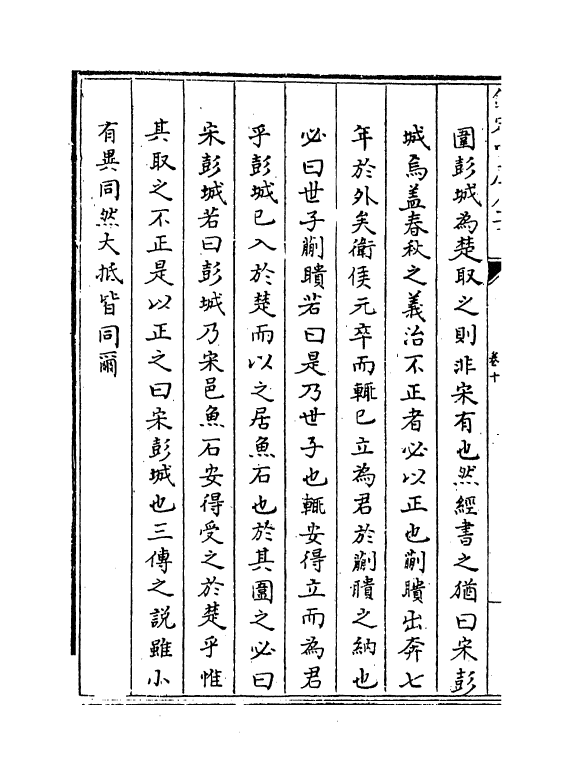 圍彭城為楚取之則非宋有也然經書之猶曰宋彭
城焉盖春秋之義治不正者必以正也蒯聵出奔七
年於外矣衛侯元卒而輒已立為君於蒯聵之納也
必曰世子蒯聵若曰是乃世子也輒安得立而為君
乎彭城已入於楚而以之居魚石也於其圍之必曰
宋彭城若曰彭城乃宋邑魚石安得受之於楚乎惟
其取之不正是以正之曰宋彭城也三傳之説雖小
有異同然大抵皆同爾
卷十